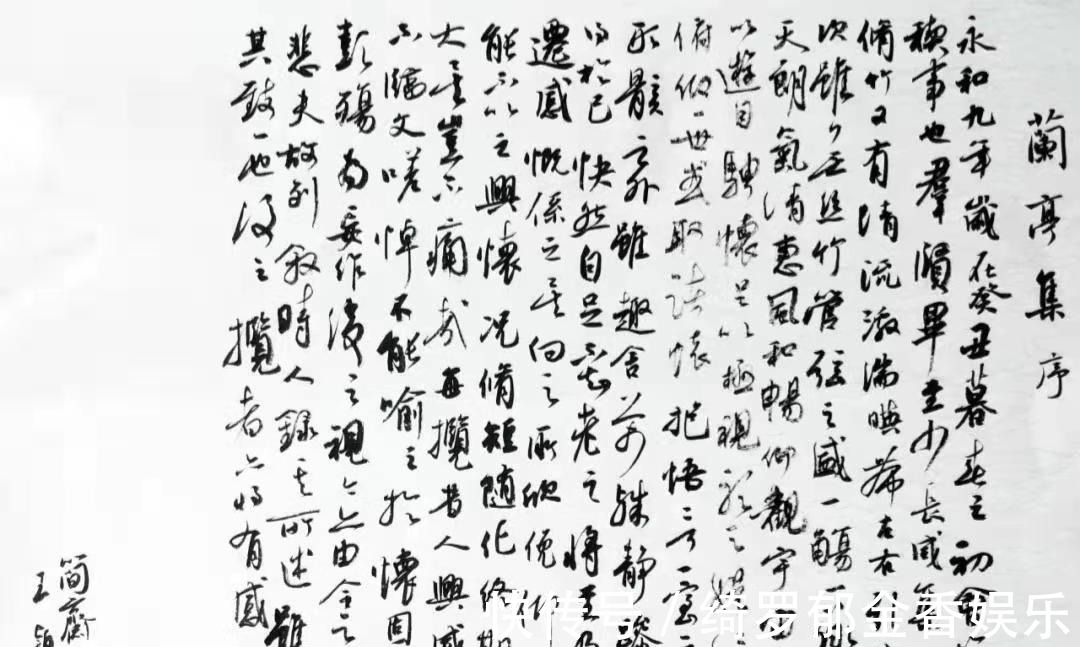 蘭亭集序
永和九年歲在癸丑暮春之初會
稧事也羣賢畢至少長咸集
脩竹又有清流激湍暎帶左右
次雖無絲竹管弦之盛一觴一
天朗氣清惠風和暢仰觀宇宙
以遊目騁懷足以極視聽之娛
俯仰一世或取諸懷抱悟言一室
形骸之外雖趣舍萬殊靜躁
得於己快然自足不知老之將至及
遷感慨係之矣向之所欣俛仰
能不以之興懷況脩短隨化終期
大矣豈不痛哉每攬昔人興感
不臨文嗟悼不能喻之於懷固
彭殤為妄作後之視今亦由今之
悲夫故列叙時人錄其所述雖
其致一也後之攬者亦將有感
简齋
王
快传号 / 绮罗郁金香娱乐